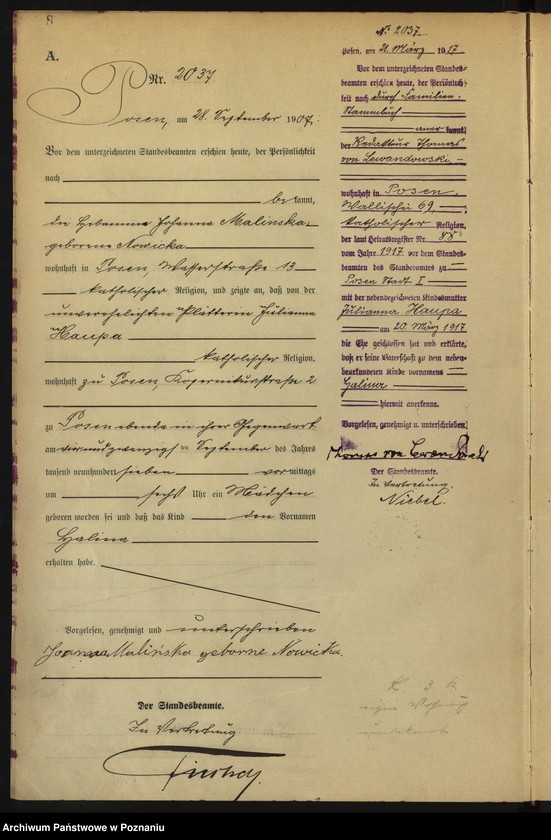 8
A.
Nr. 2037.
Posen, am 28. September 1907.
Vor dem unterzeichneten Standesbeamten erschien heute, der Persönlichkeit
nach
bekannt,
die Hebamme Johanna Malinska,
geborene Nowicka
wohnhaft in Posen, Wasserstraße 13
katholischer Religion, und zeigte an, daß von der
unverehelichten Plätterin Julianna
Haupa
katholischer Religion,
wohnhaft zu Posen, Kopernikusstraße 2
zu Posen ebenda in ihrer Gegenwart
am vierundzwanzigsten September des Jahres
tausend neunhundert sieben vormittags
um sechs Uhr ein Mädchen
geboren worden sei und daß das Kind den Vornamen
Halina
erhalten habe.
Vorgelesen, genehmigt und unterschrieben
Joanna Malińska geborne Nowicka.
Der Standesbeamte.
In Vertretung
No 2037.
Posen, am 21. März 1917
Vor dem unterzeichneten Standes-
beamten erschien heute, der Persönlich-
keit nach durch Familien-
Stammbuch
anerkannt,
der Redakteur Thomas
von Lewandowski
wohnhaft in Posen,
Wallischei 69
katholischer Religion,
der laut Heiratsregister Nr. 88
vom Jahre 1917 vor dem Standes-
beamten des Standesamtes zu
Posen Stadt I
mit der nebenbezeichneten Kindesmutter
Julianna Haupa
am 20. März 1917
die Ehe geschlossen hat und erklärte,
daß er seine Vaterschaft zu dem neben-
beurkundeten Kinde vornamens
Halina
hiermit anerkenne.
Vorgelesen, genehmigt u. unterschrieben
Thomas von Lewandowski
Der Standesbeamte.
In Vertretung.
Niebel.
Archiwum Państwowe w Poznaniu